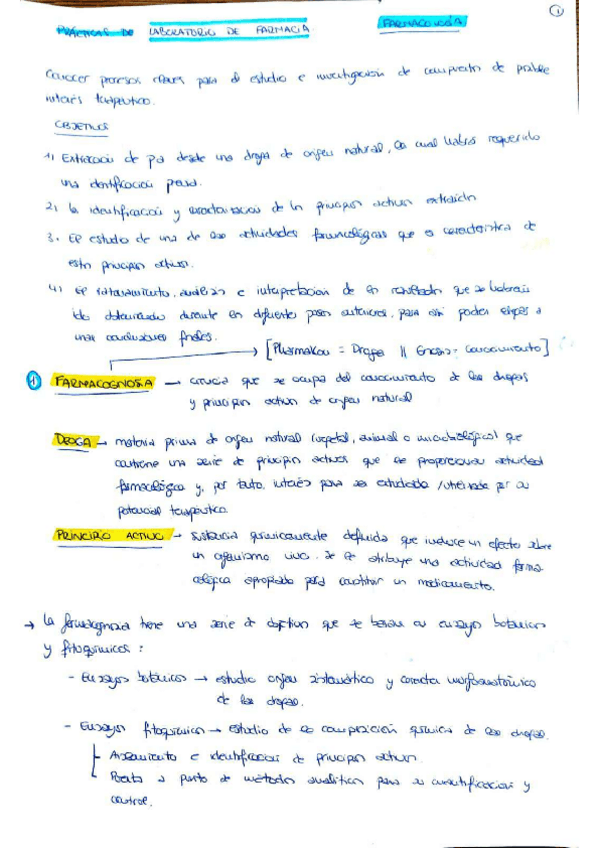 ①
PRÁCTICAS DE LABORATORIO DE FARMACIA. FARMACOLOGÍA
Conocer procesos claves para el estudio e investigación de compuestos de posible
interés terapéutico.
OBJETIVOS
1) Extracción de pa desde una droga de origen natural, la cual habrá requerido
una identificación previa.
2) la identificación y caracterización de los principios activos extraídos
3. El estudio de una de las actividades farmacológicas que es característica de
estos principios activos.
4) El tratamiento, análisis e interpretación de los resultados que se habrán
ido obteniendo durante los diferentes pasos anteriores, para así poder llegar a
unas conclusiones finales.
[Pharmakon = Droga || Gnosis = conocimiento]
① FARMACOGNOSIA → ciencia que se ocupa del conocimiento de las drogas
y principios activos de origen natural
DROGA → materia prima de origen natural (vegetal, animal o microbiológico) que
contiene una serie de principios activos que le proporcionan actividad
farmacológica y, por tanto, interés para ser estudiada / utilizada por su
potencial terapéutico.
PRINCIPIO ACTIVO → sustancia químicamente definida que induce un efecto sobre
un organismo vivo. Se le atribuye una actividad farma-
cológica apropiada para constituir un medicamento.
→ La farmacognosia tiene una serie de objetivos que se basan en ensayos botánicos
y fitoquímicos :
- Ensayos botánicos → estudio origen sistemático y carácter morfoanatómico
de las drogas.
- Ensayos fitoquímicos → estudio de la composición química de las drogas.
Aislamiento e identificación de principios activos.
Puesta a punto de métodos analíticos para su cuantificación y
control.